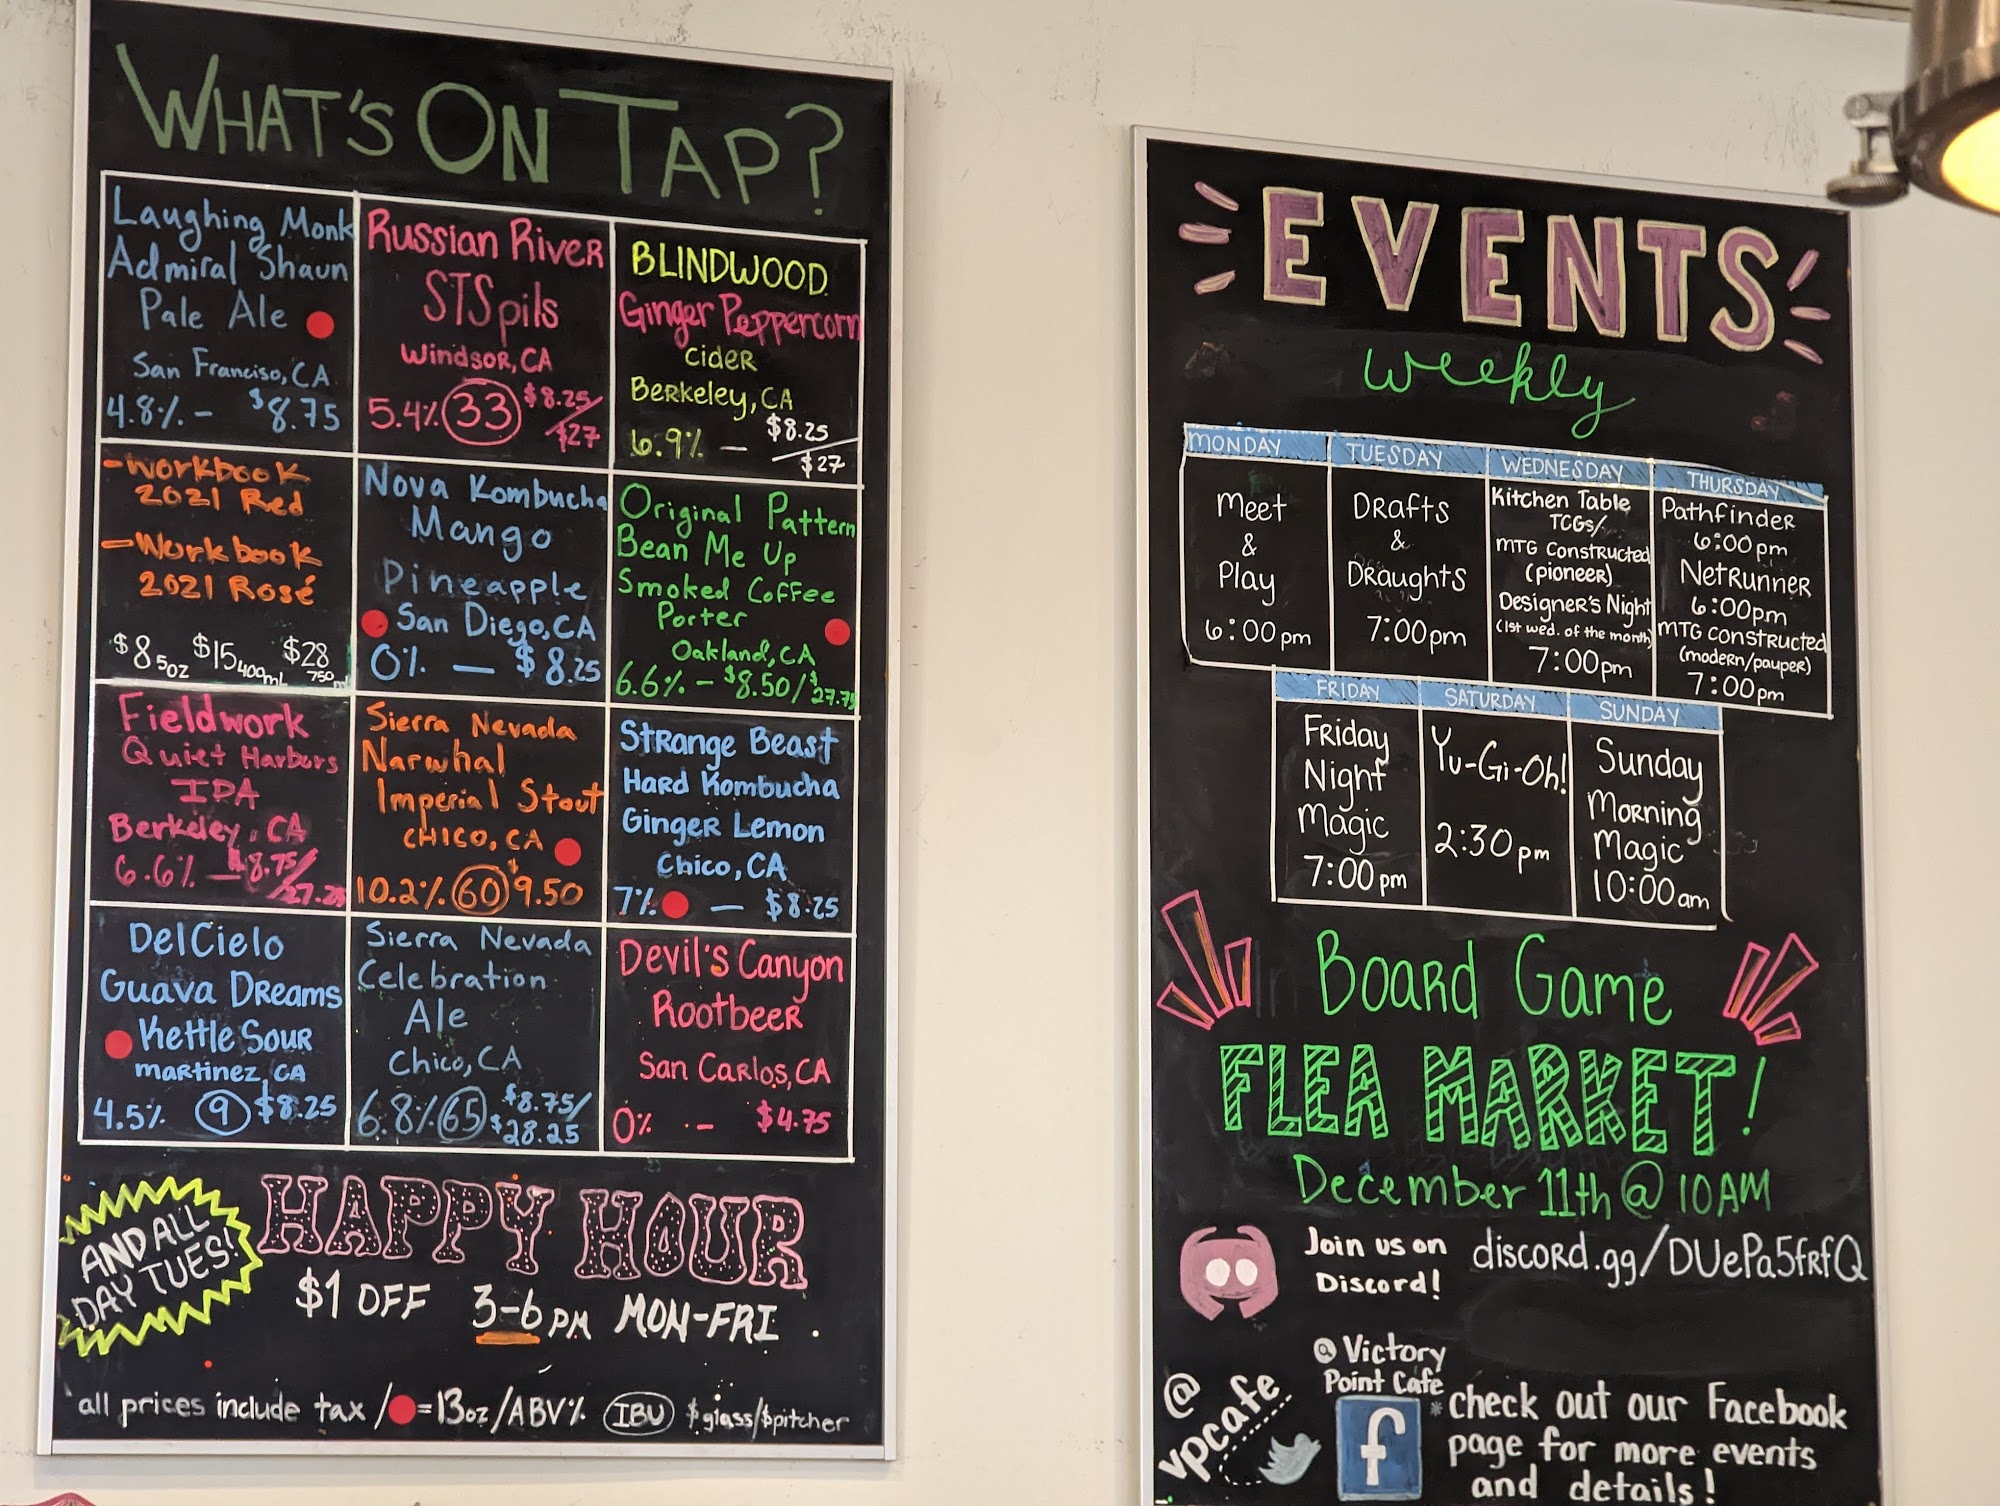 WHAT'S ON TAP?
Laughing Monk
Admiral Shaun
Pale Ale
San Francisco, CA
4.8% - $8.75
Russian River
STS pils
Windsor, CA
5.4% 33 $8.25/
$27
BLINDWOOD
Ginger Peppercorn
Cider
Berkeley, CA
6.9% — $8.25
$27
- Workbook
2021 Red
- Workbook
2021 Rosé
$8 5oz $15 400mL $28 750mL
Nova Kombucha
Mango
Pineapple
San Diego, CA
0% — $8.25
Original Pattern
Bean Me Up
Smoked Coffee
Porter
Oakland, CA
6.6% - $8.50/$27.75
Fieldwork
Quiet Harbors
IPA
Berkeley, CA
6.6% — $8.75/
27.25
Sierra Nevada
Narwhal
Imperial Stout
CHICO, CA
10.2% 60 $9.50
Strange Beast
Hard Kombucha
Ginger Lemon
Chico, CA
7% — $8.25
DelCielo
Guava Dreams
Kettle Sour
Martinez, CA
4.5% 9 $8.25
Sierra Nevada
Celebration
Ale
Chico, CA
6.8% 65 $8.75/
$28.25
Devil's Canyon
Rootbeer
San Carlos, CA
0% - $4.75
AND ALL
DAY TUES!
HAPPY HOUR
$1 OFF 3-6 PM MON-FRI.
all prices include tax / = 13oz/ABV% IBU $glass/$pitcher
EVENTS
weekly
MONDAY
Meet
&
Play
6:00pm
TUESDAY
Drafts
&
Draughts
7:00pm
WEDNESDAY
Kitchen Table
TCGs/
MTG Constructed
(pioneer)
Designer's Night
(1st wed. of the month)
7:00pm
THURSDAY
Pathfinder
6:00pm
NetRunner
6:00pm
MTG Constructed
(modern/pauper)
7:00pm
FRIDAY
Friday
Night
Magic
7:00pm
SATURDAY
Yu-Gi-Oh!
2:30pm
SUNDAY
Sunday
Morning
Magic
10:00am
Board Game
FLEA MARKET!
December 11th @ 10AM
Join us on
Discord!
discord.gg/DUePa5frfQ
@
vpcafe
Victory
Point Cafe
f
*check out our Facebook
page for more events
and details!